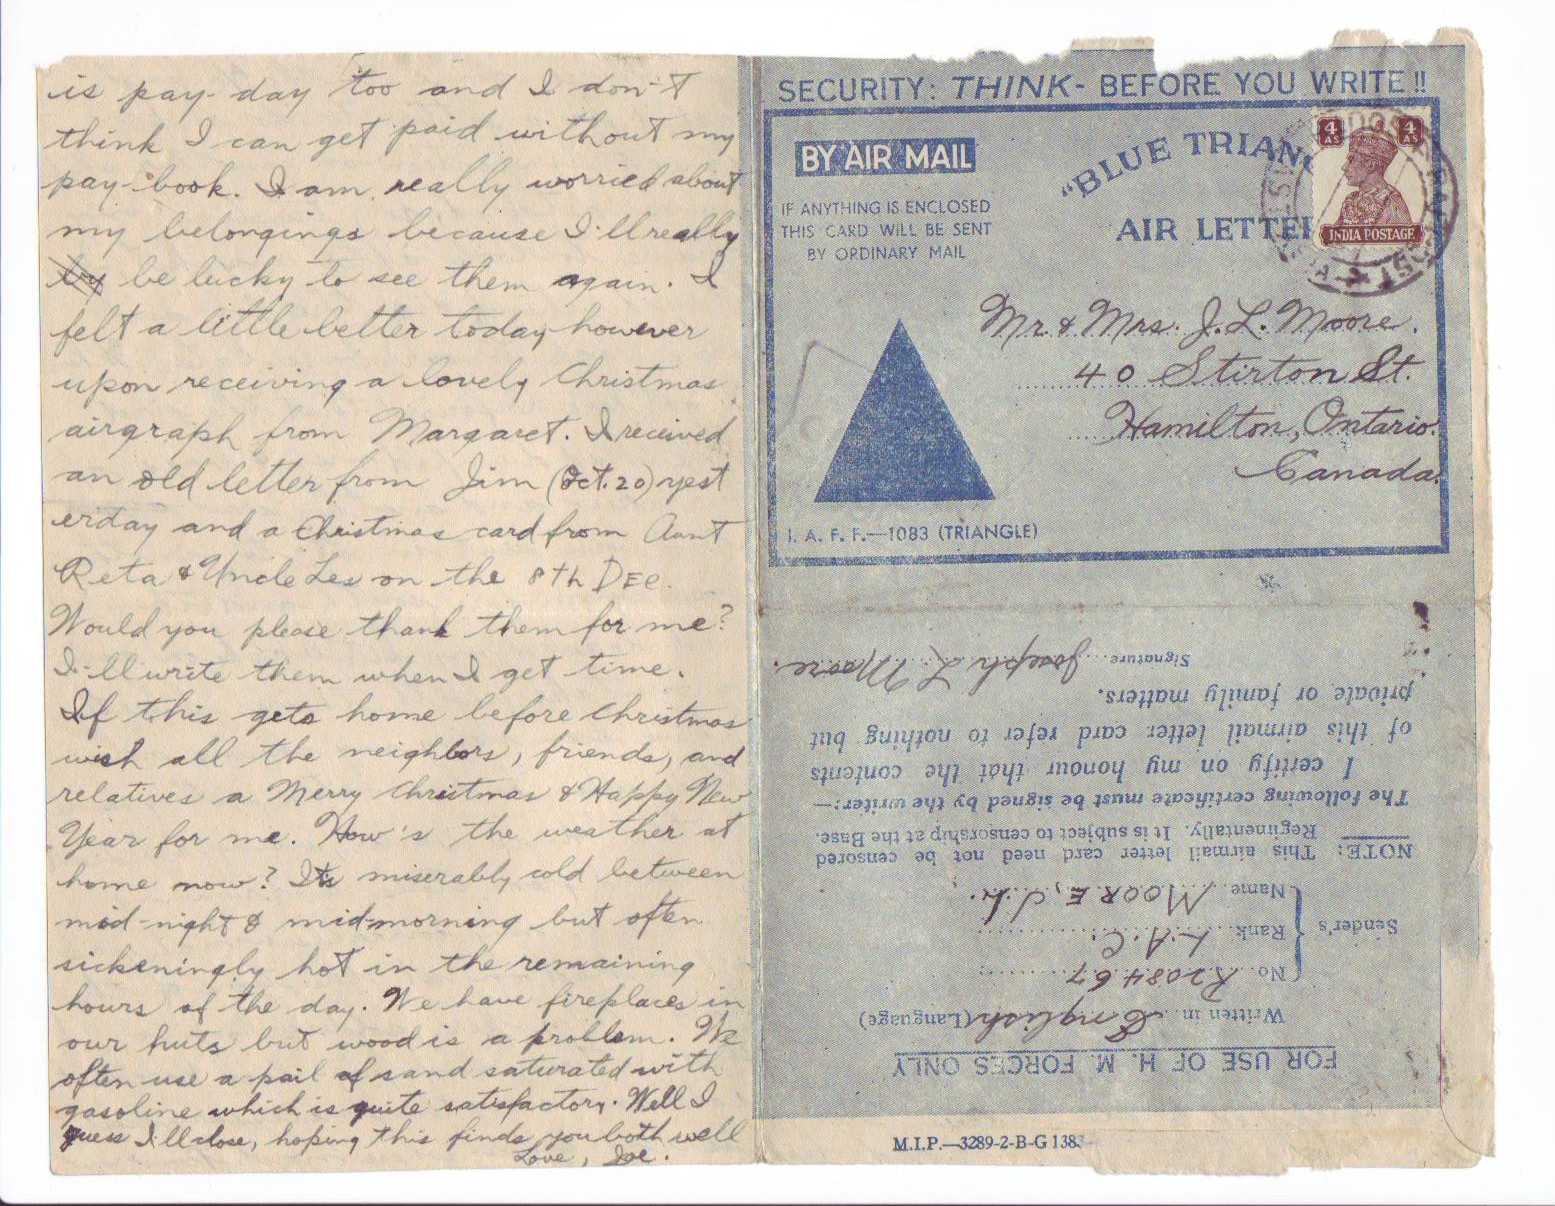 is pay-day too and I don't
think I can get paid without my
pay-book. I am really worried about
my belongings because I'll really
try be lucky to see them again. I
felt a little better today however
upon receiving a lovely Christmas
airgraph from Margaret. I received
an old letter from Jim (Oct. 20) yest
erday and a Christmas card from Aunt
Reta & Uncle Les on the 8th DEC.
Would you please thank them for me?
I'll write them when I get time.
If this gets home before Christmas
wish all the neighbors, friends, and
relatives a Merry Christmas & Happy New
Year for me. How's the weather at
home now? It's miserably cold between
mid-night & mid-morning but often
sickeningly hot in the remaining
hours of the day. We have fireplaces in
our huts but wood is a problem. We
often use a pail of sand saturated with
gasoline which is quite satisfactory. Well I
guess I'll close, hoping this finds you both well
Love, Joe.
SECURITY: THINK- BEFORE YOU WRITE !!
BY AIR MAIL
"BLUE TRIANG
AIR LETTER
IF ANYTHING IS ENCLOSED
THIS CARD WILL BE SENT
BY ORDINARY MAIL
4 AS
4 AS
INDIA POSTAGE
Mr. & Mrs. J. L. Moore.
40 Stirton St.
Hamilton, Ontario.
Canada.
I. A. F. F.—1083 (TRIANGLE)
FOR USE OF H. M. FORCES ONLY
Written in English (Language)
Sender's
No. R208467
Rank L.A.C.
Name MOORE, J. L.
NOTE: This airmail letter card need not be censored
Regimentally. It is subject to censorship at the Base.
The following certificate must be signed by the writer:—
I certify on my honour that the contents
of this airmail letter card refer to nothing but
private or family matters.
Signature Joseph L Moore.
M.I.P.—3289-2-B-G 1383